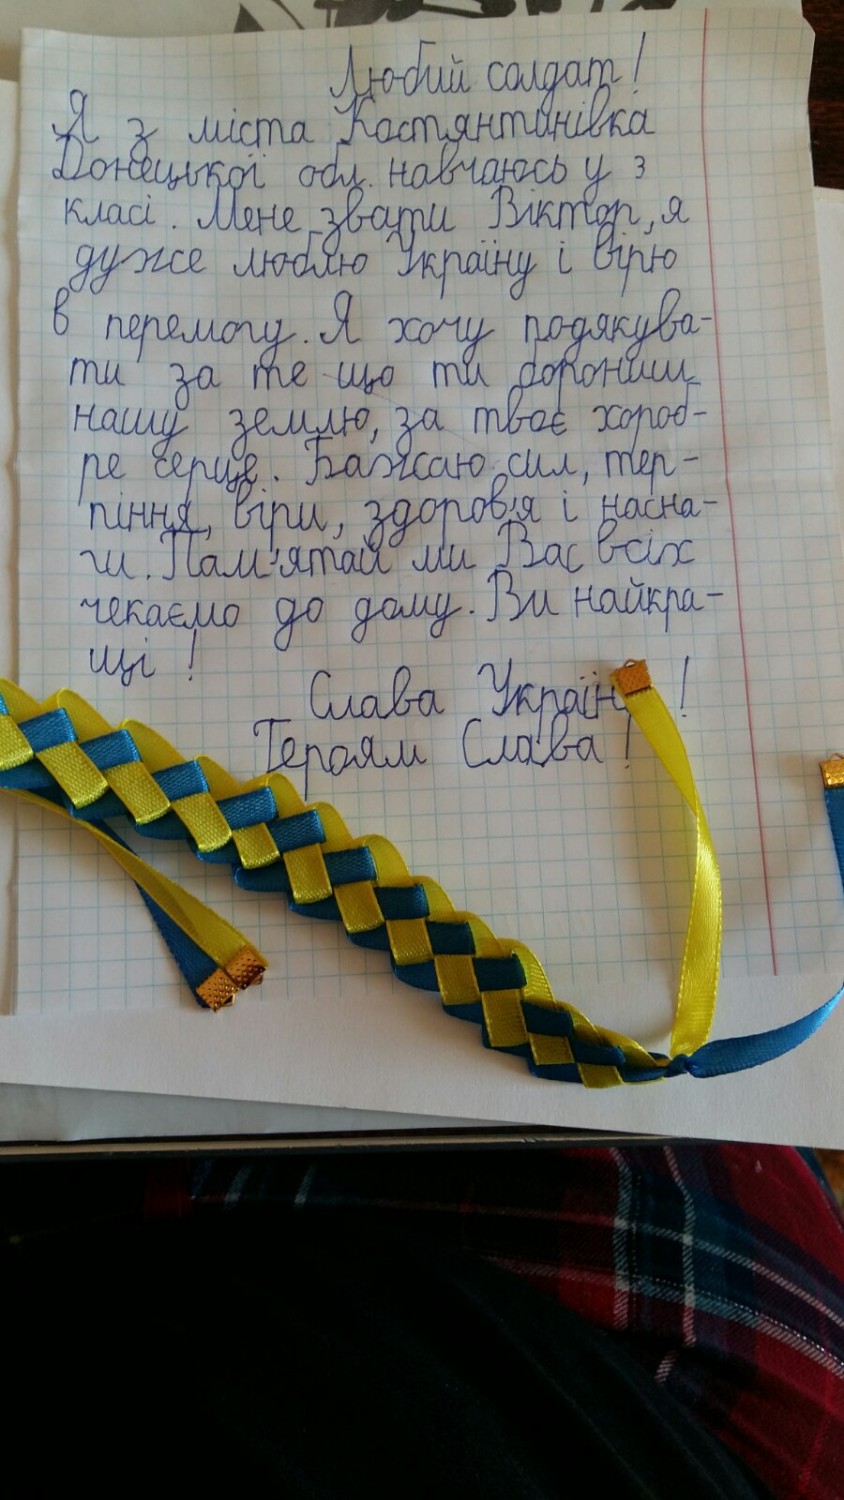 Любий солдат!
Я з міста Костянтинівка
Донецької обл. навчаюсь у 3
класі. Мене звати Віктор, я
дуже люблю Україну і вірю
в перемогу. Я хочу подякува-
ти за те що ти борониш
нашу землю, за твоє хороб-
ре серце. Бажаю сил, тер-
піння, віри, здоров'я і насна-
ги. Пам'ятай ми Вас всіх
чекаємо до дому. Ви найкра-
щі!
Слава Україн !
Героям Слава!